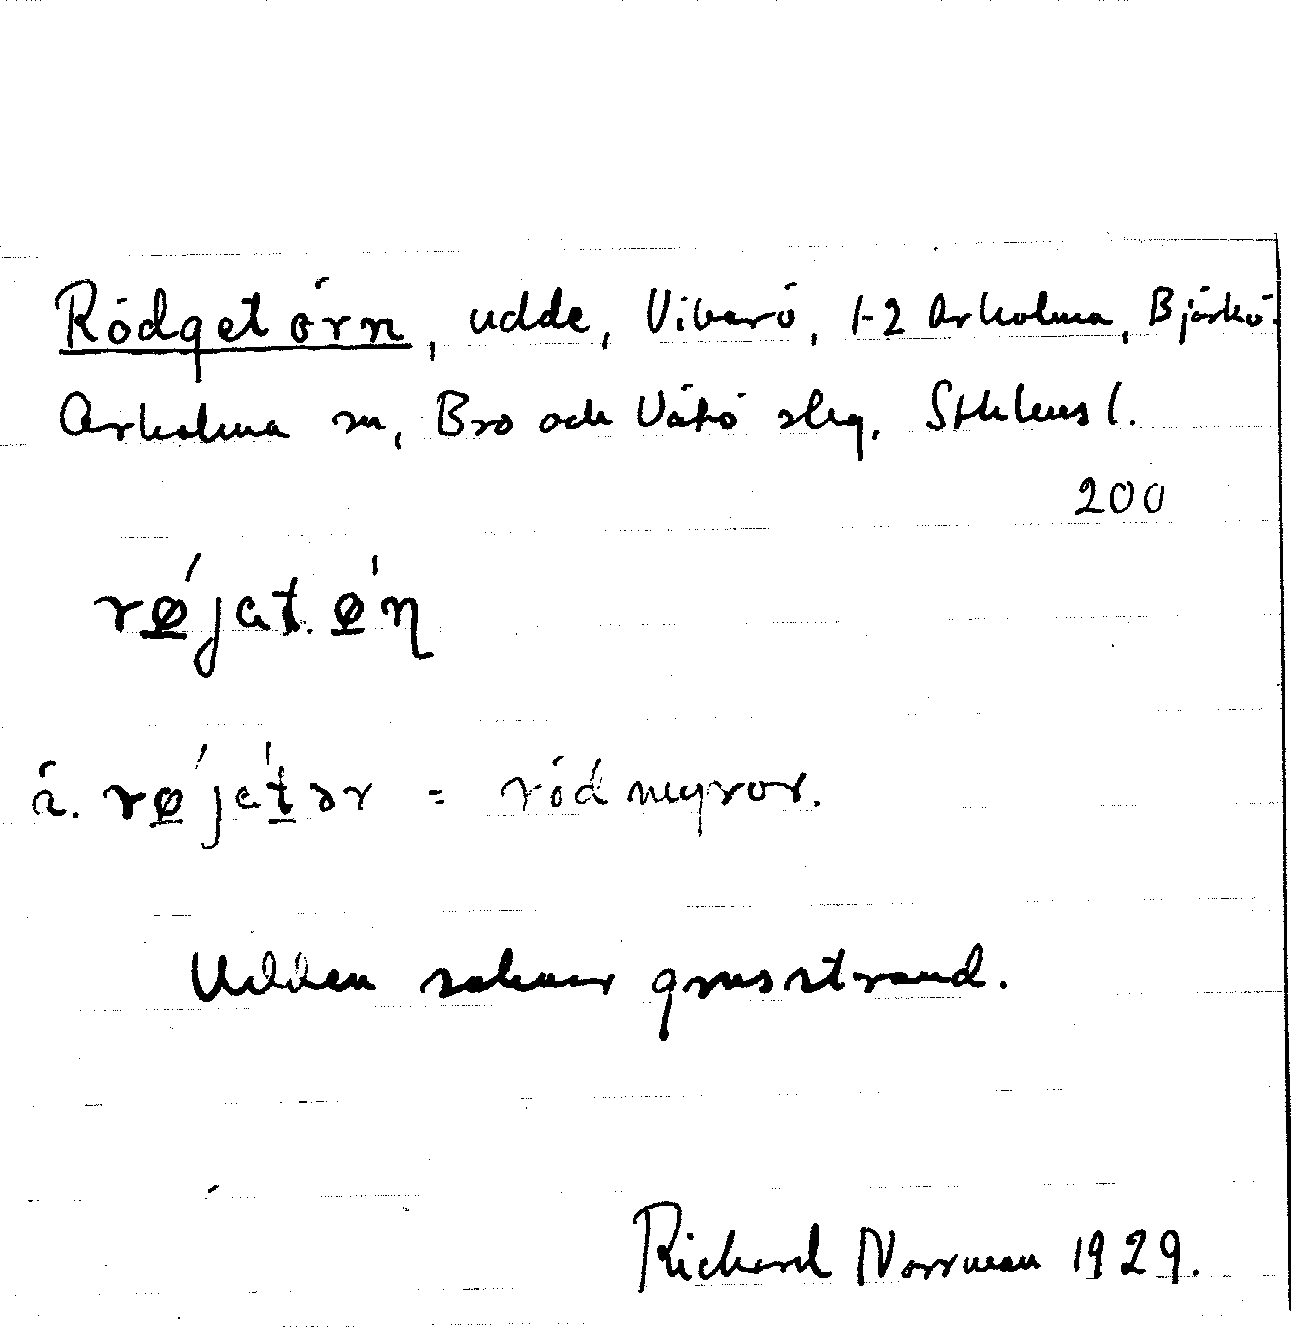 Rödgetörn, udde, Viberö, 1-2 Arholma, Björkö-
Arholma sn, Bro och Vätö slg, Sthlms l.
200
rø´jat.ø'ɳ
ä. rø´ja'tər = rödmyror.
Udden saknar grusstrand.
Richard Norrman 1929.